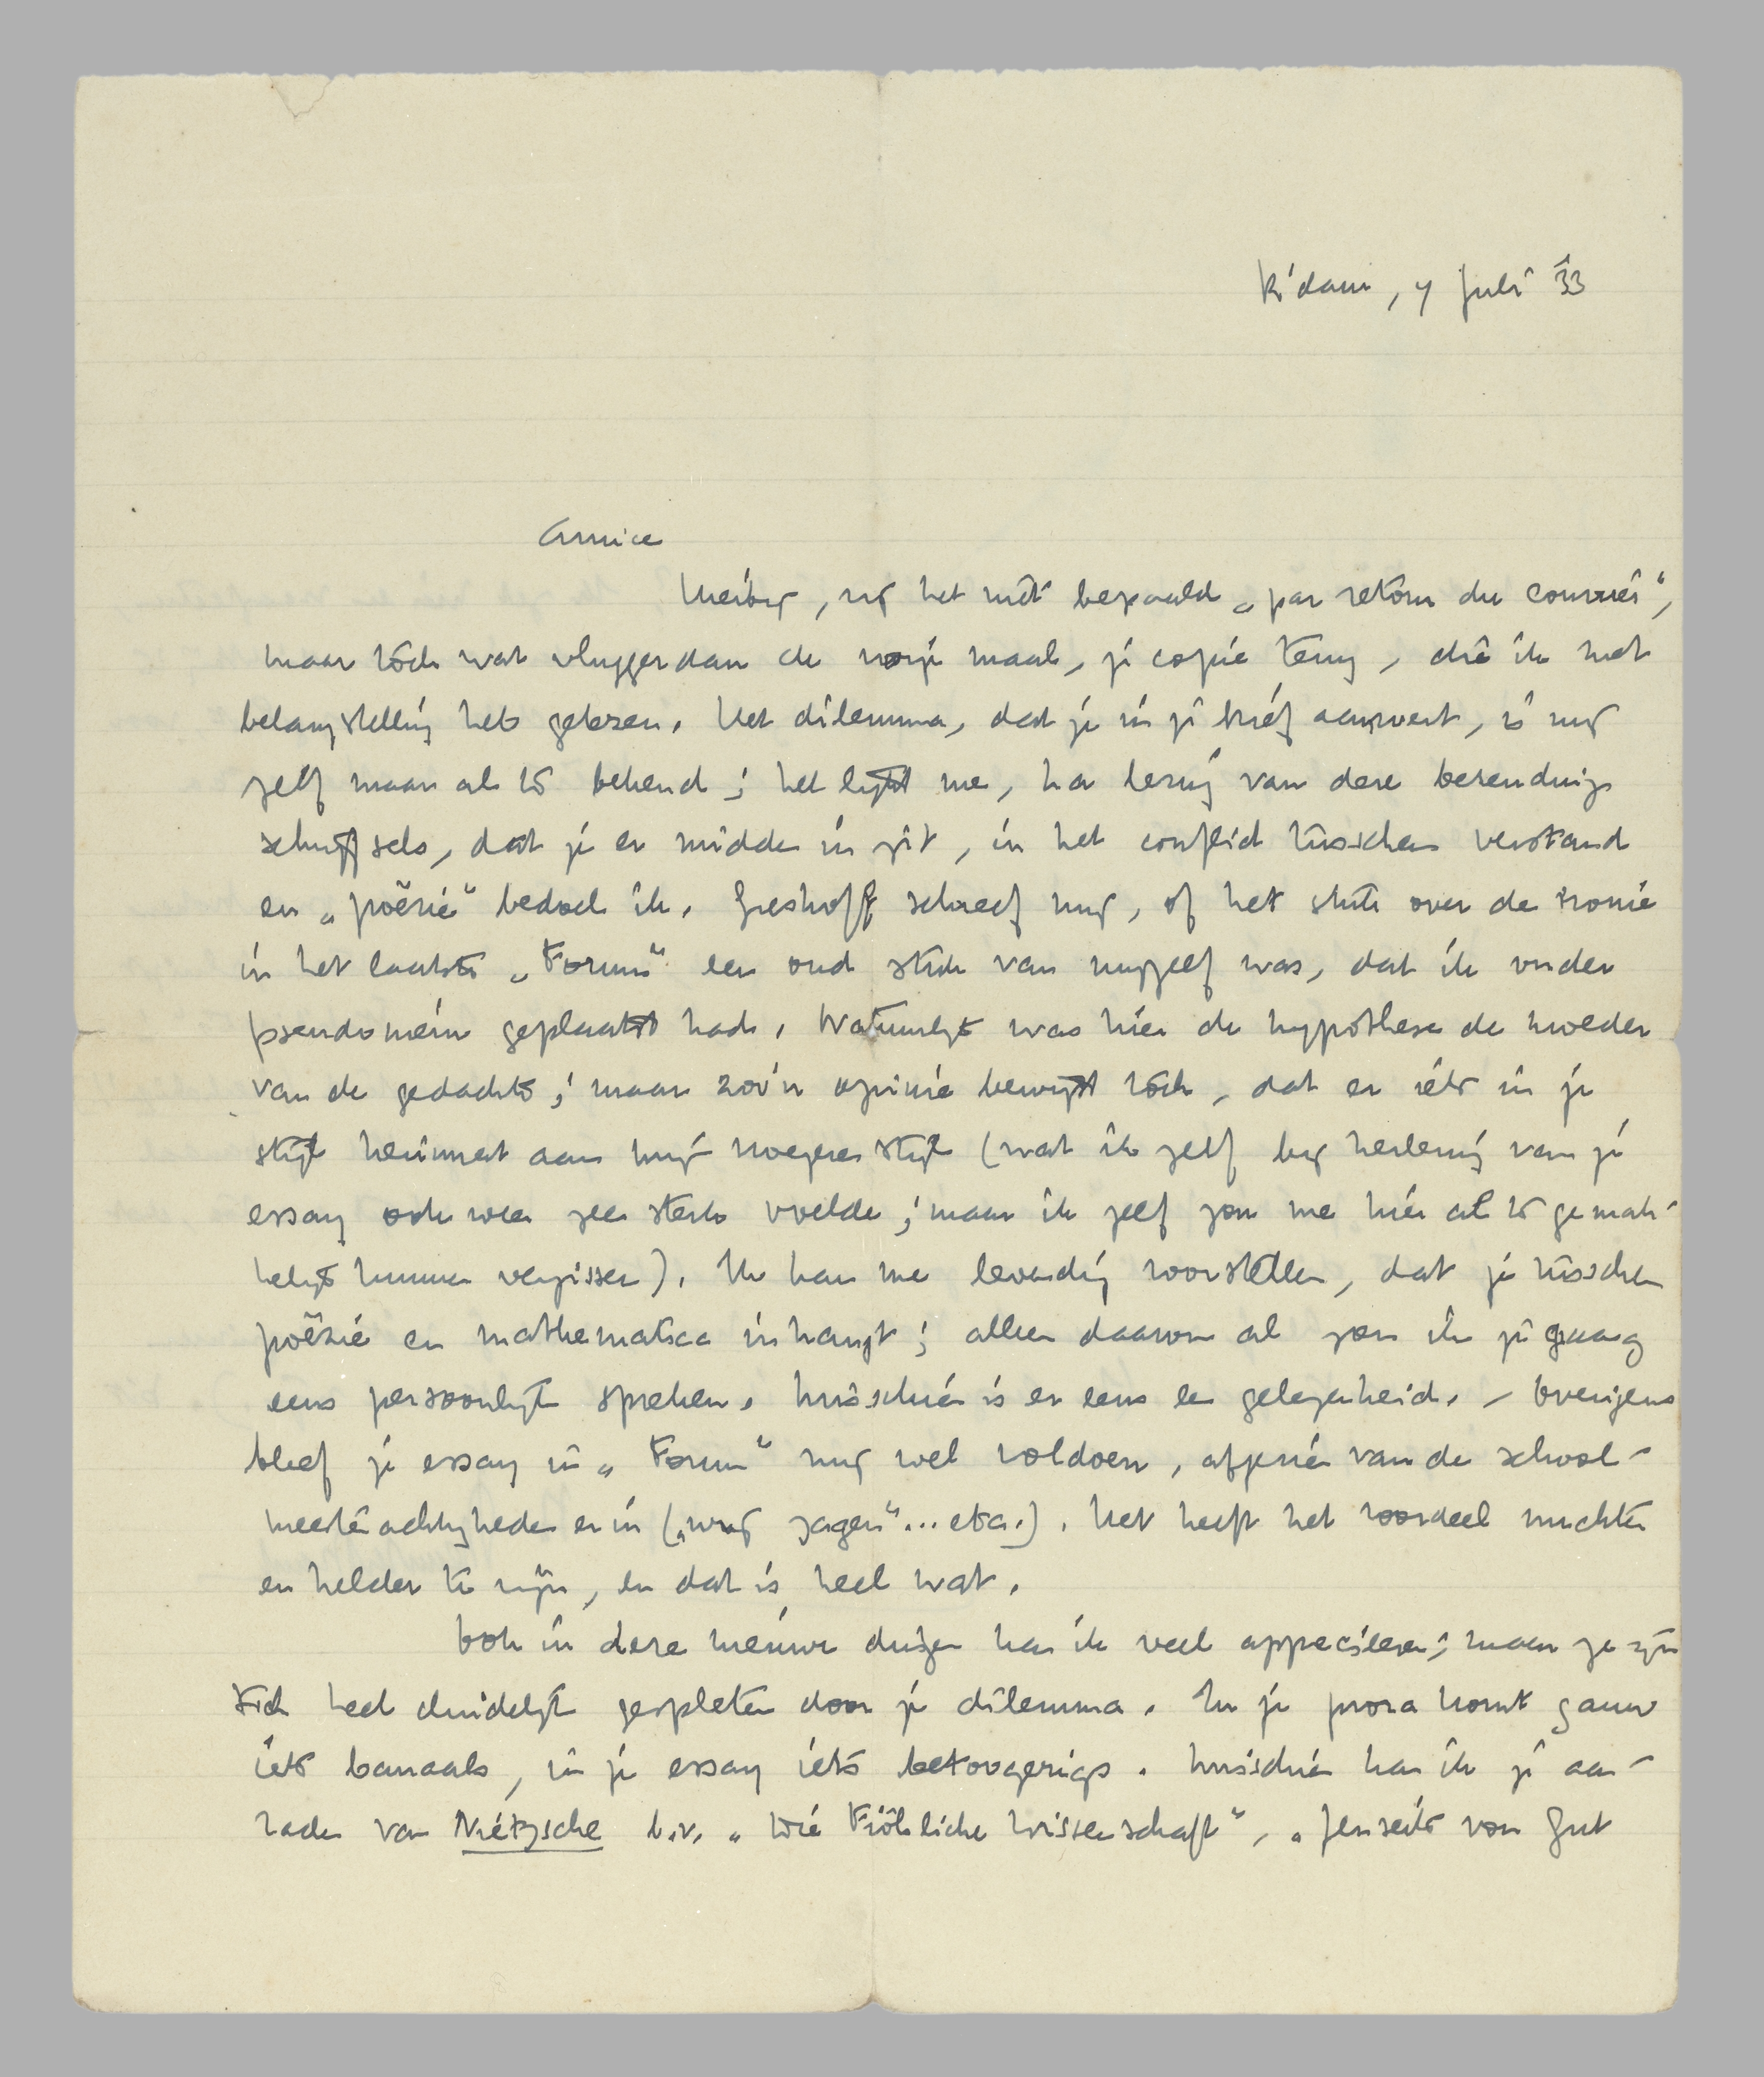 R'dam, 7 Juli '33
Amice
Hierbij, zij het niet bepaald „par retour du courrier",
maar tòch wat vlugger dan de vorige maal, je copie terug, die ik met
belangstelling heb gelezen. Het dilemma, dat je in je brief aanroert, is mij
zelf maar al te bekend; het lijkt me, na lezing van deze bezendings
schrijfsels, dat je er midden in zit, in het conflict tusschen verstand
en „poëzie" bedoel ik. Greshoff schreef mij, of het stuk over de ironie
in het laatste „Forum" een oud stuk van mijzelf was, dat ik onder
pseudoniem geplaatst had. Natuurlijk was hier de hypothese de moeder
van de gedachte; maar zoo'n opinie bewijst tòch, dat er iets in je
stijl herinnert aan mijn vroegere stijl (wat ik zelf bij herlezing van je
essay ook weer zeer sterk voelde; maar ik zelf zou me hier al te gemak-
kelijk kunnen vergissen). Ik kan me levendig voorstellen, dat je tusschen
poëzie en mathematica in hangt; alleen daarom al zou ik je graag
eens persoonlijk spreken. Misschien is er eens een gelegenheid. – Overigens
bleef je essay in „Forum" mij wel voldoen, afgezien van de school-
meesterachtigheden er in („wij zagen"... etc.). Het heeft het voordeel nuchter
en helder te zijn, en dat is heel wat.
Ook in deze nieuwe dingen kan ik veel apprecieeren; maar ze zijn
toch heel duidelijk gespleten door je dilemma. In je proza komt gauw
iets banaals, in je essay iets betoogerigs. Misschien kan ik je aan-
raden van Nietzsche b.v. „Die Fröhliche Wissenschaft", „Jenseits von Gut